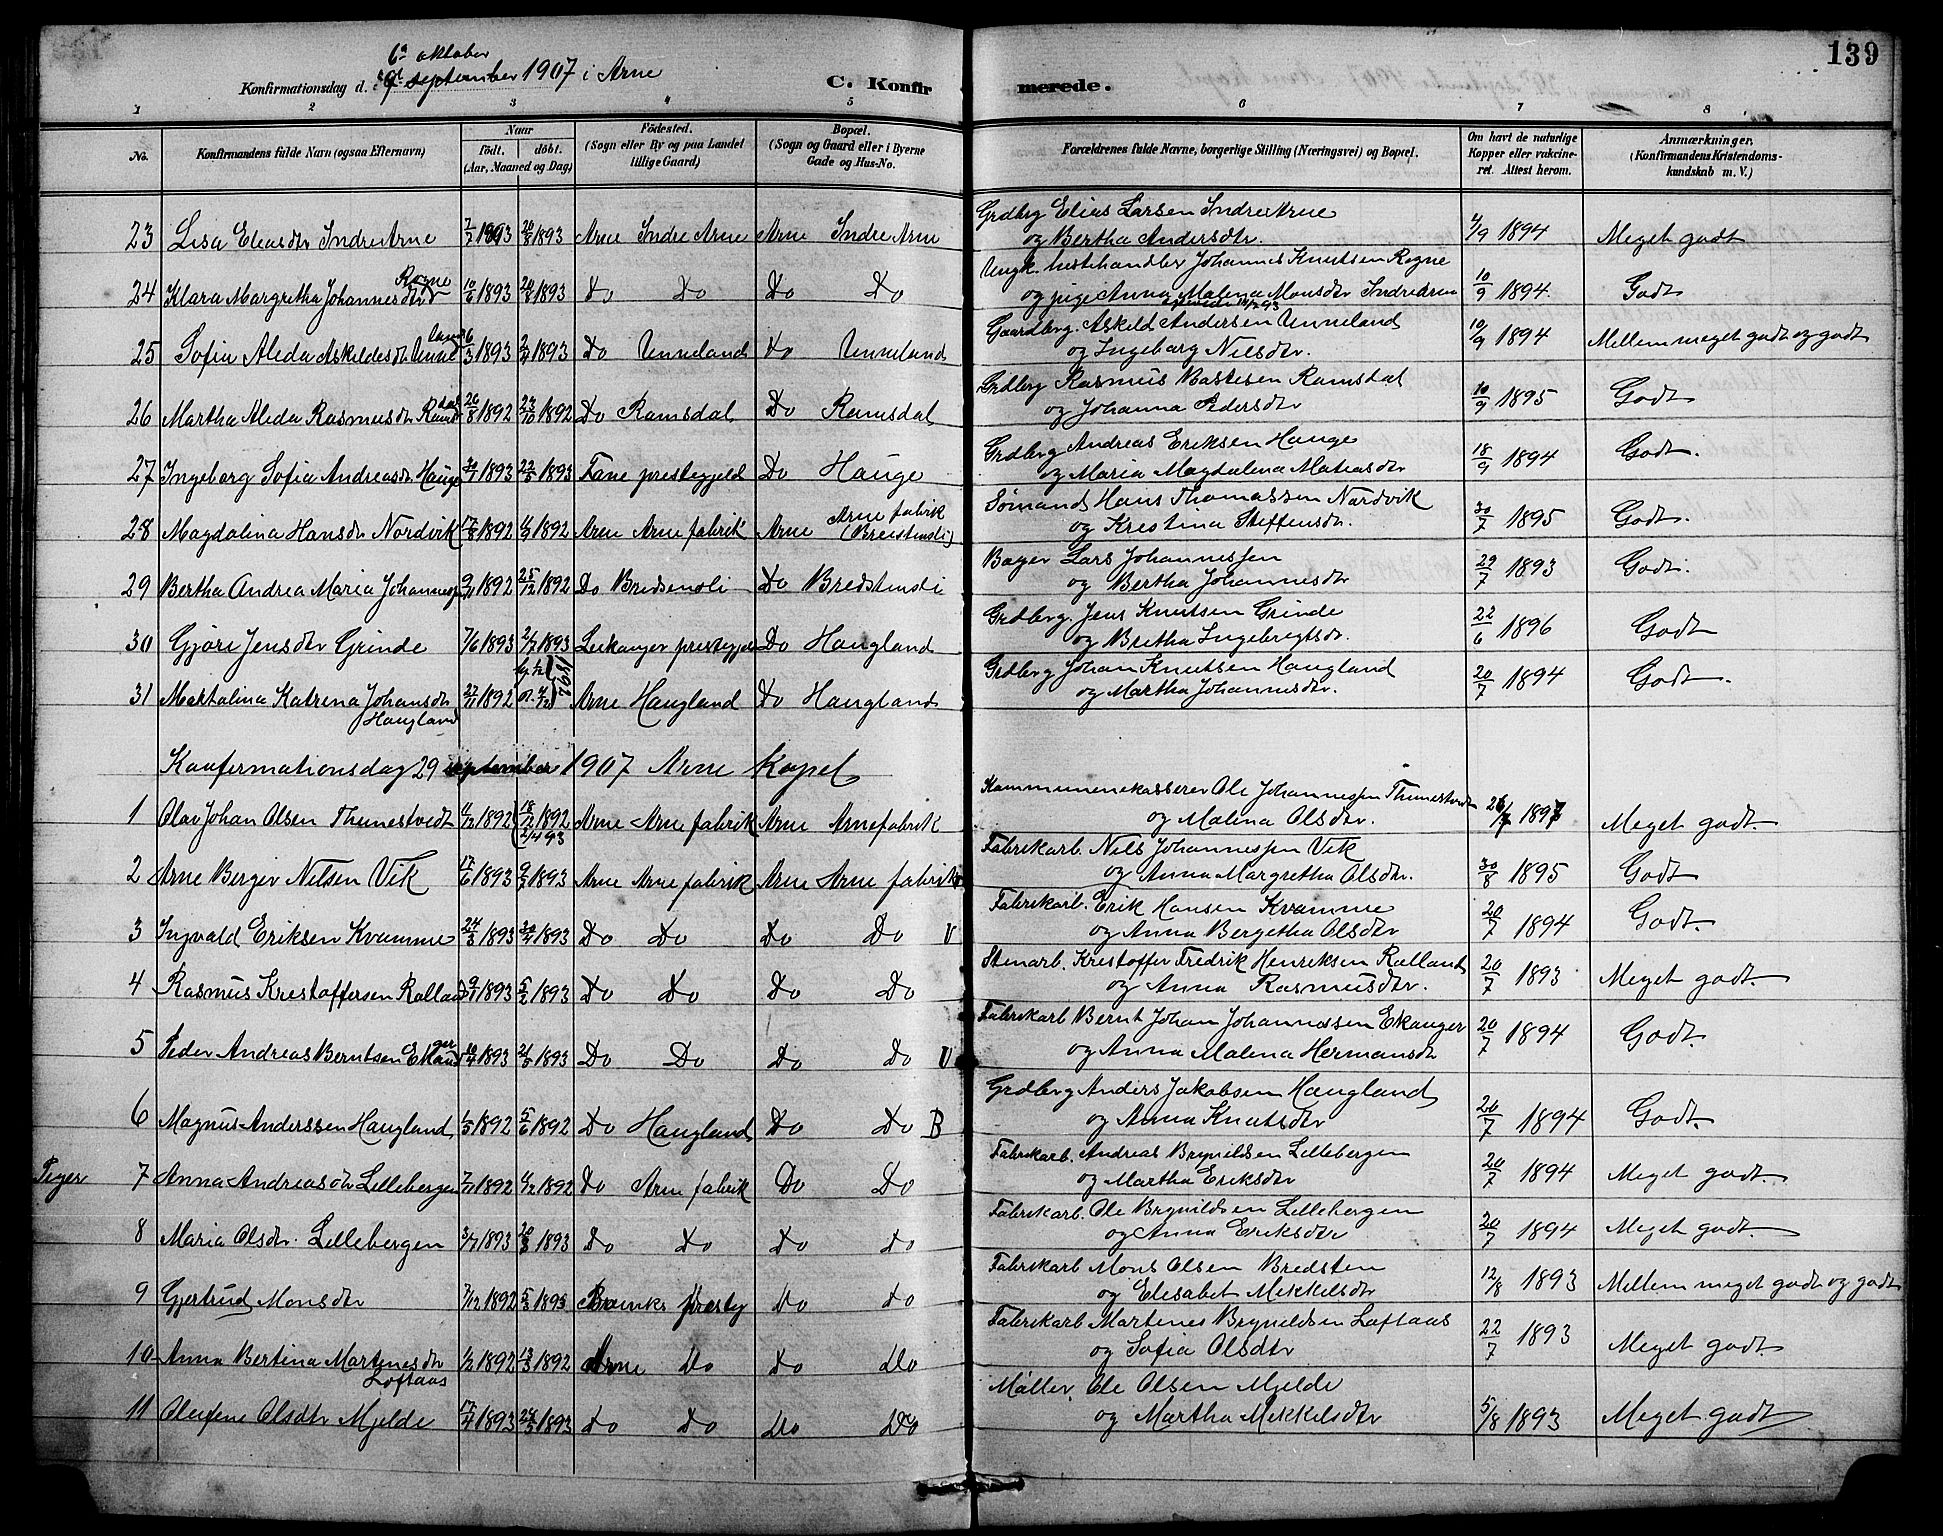 139
6te oktober
Konfirmationsdag d. september 1907 i Arne
C. Konfirmerede.
1 2 3 4 5 6 7 8
No. Konfirmandens fulde Navn (ogsaa Efternavn) Naar Födt. döbt. (Aar, Maaned og Dag) Födested. (Sogn eller By og paa Landet tillige Gaard) Bopæl. (Sogn og Gaard eller i Byerne Gade og Hus-No. Forældrenes fulde Navne, borgerlige Stilling (Næringsvei) og Bopæl. Om havt de naturlige Kopper eller vakcineret. Attest herom. Anmærkninger. (Konfirmandens Kristendomskundskab m. V.)
23 Lisa Eliasdtr Indre Arne 7/7 1893 20/8 1893 Arne Indre Arne Arne Indre Arne Grdbrg Elias Larsen Indre Arne 4/9 1894 Meget godt
og Bertha Andersdtr.
24 Klara Margretha Johannesdtr Rogne 10/6 1893 20/8 1893 Do Do Do Do Ungk. hestehandler Johannes Knutsen Rogne 10/9 1894. Godt
og pige Anna Malena Monsdtr Indre Arne
25 Sofia Aleda Askildsdtr Unneland 26/3 1893 1893 Do Unneland Do Unneland Gaardbrg. Askild Andersen Unneland 10/9 1894 Mellem meget godt og godt
og Ingeborg Nilsdtr.
26 Martha Aleda Rasmusdtr Ramsdal 20/8 1892 23/10 1892 Do Ramsdal Do Ramsdal Grdbrg Rasmus Bastesen Ramsdal 10/9 1895 Godt
og Johanna Pedersdtr
27 Ingeborg Sofia Andreasdtr Hauge 1893 1893 Fane prestegjeld Do Hauge Grdbrg Andreas Eriksen Hauge 18/9 1894 Godt.
og Maria Magdalena Matiasdtr
28 Magdalina Hansdtr Nordvik 1892 1892 Arne Arne fabrik Arne Arne fabrik (Breistensli) Sømand Hans Thomassen Nordvik 30/7 1895 Godt.
og Kristina Steffensdtr.
29 Bertha Andrea Maria Johannesen 1892 25/12 1892 Do Bredsensli Do Bredstensli Bager Lars Johannesen 29/7 1893 Godt.
og Bertha Johannesdtr
30 Gjøri Jensdtr Grinde 7/6 1893 2/7 1893 Leikanger prestegjeld Do Haugland Grdbrg. Jens Knutsen Grinde 22/6 1896 Godt
og Bretha Ingebregtsdtr.
31 Maktalina Katrina Johansdtr Haugland 27/11 1892 1892 Arne Haugland Do Haugland Grdbrg Johan Knutsen Haugland 20/7 1894 Godt.
og Martha Johannesdtr.
Konfermationsdag 29 september 1907 Arne Kapel
1 Olav Johan Olsen Thunestvedt 1892 18/12 1892 Arne Arne fabrik Arne Arne fabrik Kommunenekasserer Ole Johannessen Thunestvedt 1897 Meget godt.
og Malena Olsdtr.
2 Arne Berger Nilsen Vik 17/6 1893 1893 Arne Arne fabrik Arne Arne fabrik Fabrikarb. Nils Johannessen Vik 30/8 1895 Godt
og Anna Margretha Olsdtr.
3 Ingvald Eriksen Kvamme 24/3 1893 30/4 1893 Do Do Do Do V Fabrikarb. Erik Hansen Kvamme 20/7 1894 Godt.
og Anna Bergetha Olsdtr
4 Rasmus Krestoffersen Ralland 9/1 1893 5/2 1893 Do Do Do Do Stenarb. Krestoffer Fredrik Henriksen Ralland 20/7 1893 Meget godt.
og Anna Rasmusdtr.
5 Peder Andreas Berntsen Ekanger 10/4 1893 21/5 1893 Do Do Do Do V Fabrikarb Bernt Johan Johannessen Ekanger 20/7 1894 Godt.
og Anna Malena Hermansdtr
6 Magnus Anderssen Haugland 1/5 1892 5/6 1892 Do Haugland Do Do B Grdbrg Anders Jakobsen Haugland 20/7 1894 Godt.
og Anna Knutsdtr
Piger 7 Anna Andreasdtr Lillebergen 1892 1892 Do Arne fabrik Do Do Fabrikarb. Andreas Brynildsen Lillebergen 20/7 1894 Meget godt.
og Martha Eriksdtr
8 Maria Olsdtr. Lillebergen 1893 1893 Do Do Do Do Fabrikarb. Ole Brynildsen Lillebergen 20/7 1894 Meget godt.
og Anna Eriksdtr
9 Gjertrud Monsdtr 7/12 1892 5/3 1893 presteg Do Do Fabrikarb Mons Olsen Bredsten 12/8 1893 Mellem meget godt og godt
og Elisabet Mikkelsdtr
10 Anna Bertina Martinesdtr Loftaas 1/2 1892 13/3 1892 Arne Do Do Do Fabrikarb Martenes Brynildsen Loftaas 22/7 1893 Meget godt.
og Sofia Olsdtr
11 Olefine Olsdtr Mjelde 17/4 1893 28/5 1893 Do Do Do Do Møller, Ole Olsen Mjelde 5/8 1893 Meget godt
og Martha Mekkelsdtr